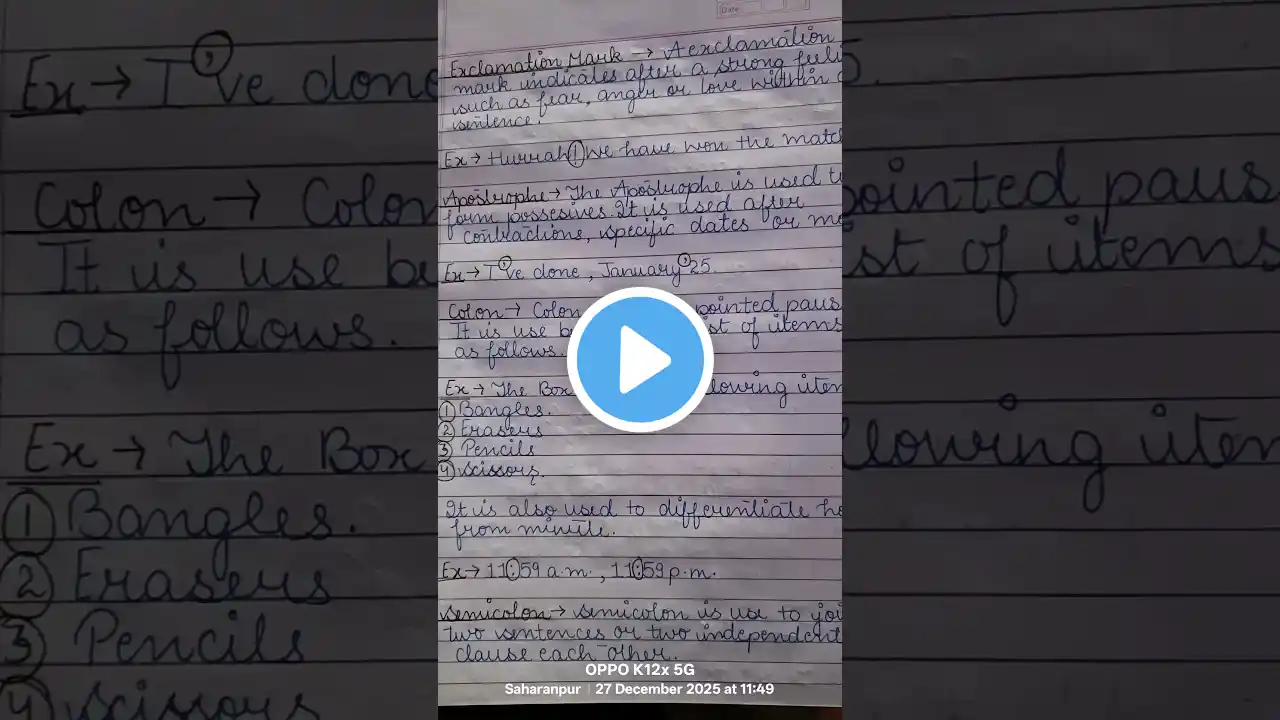 Date
Exclamation Mark → A exclamation
mark indicates after a strong feeli
such as fear, anger or love within
sentence.
Ex → Hurrah! We have won the match
Apostrophe → The Apostrophe is used t
form possesives. It is used after
contractions, specific dates or mo
Ex → I've done, January'25.
Colon → Colon pointed paus
It is use be st of items
as follows.
Ex → The Box llowing item
① Bangles.
② Erasers
③ Pencils
④ Scissors.
It is also used to differentiate ho
from minute.
Ex → 11:59 a.m., 11:59 p.m.
Semicolon → semicolon is use to joi
two sentences or two independent
clause each other.
OPPO K12x 5G
Saharanpur | 27 December 2025 at 11:49